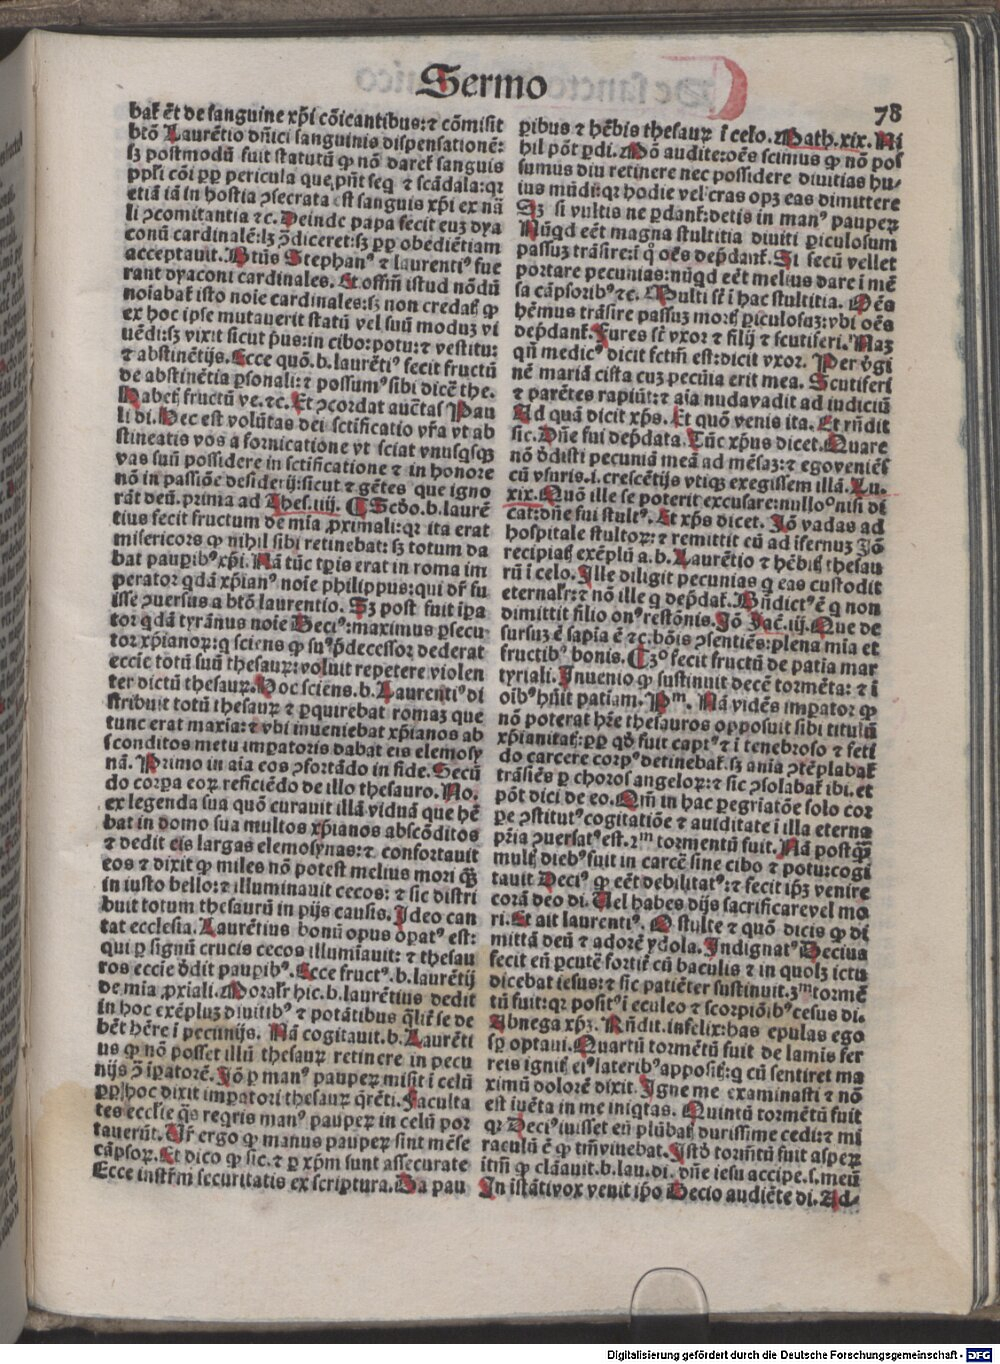 Sermo
78
bat̄ ēt de sanguine xp̄i cōicantibus: ⁊ cōmisit
btō Laurētio dn̄ici sanguinis dispensationē:
sꝫ postmodū fuit statutū ꝙ nō daret̄ sanguis
pp̄li cōi ꝓp̄ pericula que pn̄t seq̄ ⁊ scādala: qꝛ
etiā iā in hostia ↄsecrata est sanguis xp̄i ex nā
li ↄcomitantia ⁊c. Deinde papa fecit euꝫ dya
conū cardinalē: lꝫ ↄ̄diceret: sꝫ ꝓp̄ obediētiam
acceptauit. Btūs Stephanꝰ ⁊ laurentiꝰ fue
rant dyaconi cardinales. Et oſſm̄ istud nōdū
noīabat̄ isto noīe cardinales: sꝫ non credat̄ ꝙ
ex hoc ipse mutauerit statū vel suū moduꝫ vi
uēdi: sꝫ vixit sicut p̄us: in cibo: potu: ⁊ vestitu:
⁊ abstinētijs. Ecce quō. b. laurētiꝰ fecit fructū
de abstinētia ꝑsonali: ⁊ possumꝰ sibi dicē the.
Habetꝭ fructū ve. ⁊c. Et ↄcordat auct̄as Pau
li di. Hec est volūtas dei sctificatio vr̄a vt ab
stineatis vos a fornicatione vt sciat vnusqͥsqꝫ
vas suū possidere in sctificatione ⁊ in honore
nō in passiōe desiderij: sicut ⁊ gētes que igno
rāt deū. prima ad Thes. iiij. ¶ Scdo. b. laurē
tius fecit fructum de mīa ꝓximali: qꝛ ita erat
misericors ꝙ nihil sibi retinebat: sꝫ totum da
bat pauꝑibꝰ xp̄i. Nā tūc tꝑis erat in roma im
perator qͥdā xp̄ianꝰ noīe philippus: qui dr̄ fu
isse ↄuersus a btō laurentio. Sꝫ post fuit īꝑa
tor qͥdā tyrānus noīe Deciꝰ: maximus ꝑsecu
tor xp̄ianoꝝ: q̄ sciens ꝙ suꝰ p̄decessor dederat
eccīe totū suū thesauꝝ: voluit repetere violen
ter dictū thesauꝝ. Hoc sciēns. b. Laurentiꝰ di
stribuit totū thesauꝝ ⁊ ꝑquirebat romaꝫ que
tunc erat maxīa: ⁊ vbi inueniebat xp̄ianos ab
sconditos metu imꝑatoris dabat eis elemosy
nā. Primo in aīa eos ↄfortādo in fide. Secū
do corꝑa eoꝝ reficiēdo de illo thesauro. No.
ex legenda sua quō curauit illā viduā que hē
bat in domo sua multos xp̄ianos abscōditos
⁊ dedit eis largas elemosynas: ⁊ confortauit
eos ⁊ dixit ꝙ miles nō potest melius mori qͣꝫ
in iusto bello: ⁊ illuminauit cecos: ⁊ sic distri
buit totum thesaurū in pijs causis. Ideo can
tat ecclesia. Laurētius bonū opus oꝑatꝰ est:
qui ꝑ signū crucis cecos illumīauit: ⁊ thesau
ros eccīe dedit pauꝑibꝰ. Ecce fructꝰ. b. laurētij
de mīa ꝓxīali. Moralr̄ hic. b. laurētius dedit
in hoc exēpluꝫ diuitibꝰ ⁊ potātibus q̄lit̄ se de
bēt hēre ī pecunijs. Nā cogitauit. b. Laurēti
us ꝙ nō posset illū thesauꝝ retinere in pecu
nijs ↄ̄ īꝑatorē. Iō ꝑ manꝰ pauꝑeꝝ misit ī celū
ꝓp̄ hoc dixit imꝑatori thesauꝝ q̄rēti. Faculta
tes eccl̄ie qͣs regris manꝰ pauꝑeꝝ in celū por
tauerūt. Ar̄ ergo ꝙ manus pauꝑeꝝ sint mēse
cāpsoꝝ. Et dico ꝙ sic. ⁊ ꝑ xp̄m sunt assecurate
Ecce instr̄m securitatis ex scriptura. Da pau
ꝑibus ⁊ hēbis thesauꝝ ī celo. Math. xix. Ni
hil pōt ꝑdi. Mō audite: oēs scimus ꝙ nō pos
sumus diu retinere nec possidere diuitias hu-
ius mūdi: qꝛ hodie vel cras opꝫ eas dimittere
Sꝫ si vultis ne ꝑdant̄: detis in manꝰ pauꝑeꝝ
Nūqͥd eēt magna stultitia diuiti ꝑiculosum
passuꝫ trāsire: ī qͦ oēs dep̄dant̄. Si secū vellet
portare pecunias: nūqͥd eēt melius dare ī mē
sa cāpsoribꝰ ⁊c. Multi sūt ī hac stultitia. Oēs
hēmus trāsire passuꝫ mortꝭ ꝑiculosaꝫ: vbi oēs
dep̄dant̄. Fures sūt vxor ⁊ filij ⁊ scutiferi. Naꝫ
qn̄ medicꝰ dicit fctm̄ est: dicit vxor. Per v̄gi
nē mariā cista cuꝫ pecūia erit mea. Scutiferi
⁊ parētes rapiūt: ⁊ aīa nudavadit ad iudiciū
Ad quā dicit xp̄s. Et quō venis ita. Et rn̄dit
sic. Dn̄e fui dep̄data. Tūc xp̄us dicet. Quare
nō dedisti pecuniā meā ad mēsaꝫ: ⁊ egoveniēs
cū vsuris. i. crescētijs vtiqꝫ exegissem illā. Lu.
xix. Quō ille se poterit excusare: nulloº nisi di
cat: dn̄e fui stultꝰ. Et xp̄s dicet. Iō vadas ad
hospitale stultoꝝ: ⁊ remittit cū ad īfernuꝫ Iō
recipiatꝭ exēplū a. b. Laurētio ⁊ hēbitꝭ thesau
rū ī celo. Ille diligit pecunias q̄ eas custodit
eternalr̄: ⁊ nō ille q̄ dep̄dat̄. Bn̄dictꝰ ē q̄ non
dimittit filio onꝰ restōnis. Iō Iac̄. iij. Que de
sursuꝫ ē sapīa ē ⁊c. bōis ↄsentiēs: plena mīa et
fructibꝰ bonis. ¶ 3º fecit fructū de patīa mar
tyriali. Inuenio ꝙ sustinuit decē tormēta: ⁊ ī
oībꝰ hūit patīam. Pᵐ. Nā vidēs imꝑator ꝙ
nō poterat hr̄e thesauros opposuit sibi titulū
xp̄ianitatꝭ: ꝓp̄ qd̄ fuit captꝰ ⁊ ī tenebroso ⁊ feti
do carcere corpꝰ detinebat̄. sꝫ anīa ↄtēplabat̄
trāsiēs ꝑ choros angeloꝝ: ⁊ sic ↄsolabat̄ ibi. et
pōt dici de eo. Qm̄ in hac ꝑegriatōe solo cor
ꝑe ↄstitutꝰ cogitatiōe ⁊ auiditate ī illa eterna
pr̄ia ↄuersatꝰ est. 2ᵐ tormentū fuit. Nā postqͣꝫ
multꝭ diebꝰ fuit in carcē sine cibo ⁊ potu: cogi
tauit Deciꝰ ꝙ eēt debilitatꝰ: ⁊ fecit ip̄ꝫ venire
corā deo di. Uel habes dijs sacrificarevel mo
ri. Et ait laurentiꝰ. O stulte ⁊ quō dicis ꝙ di
mittā deū ⁊ adorē ydola. Indignatꝰ Decius
fecit eū ꝑcutē fortit̄ cū baculis ⁊ in quolꝫ ictu
dicebat iesus: ⁊ sic patiēter sustinuit. 3ᵐ tormē
tū fuit: qꝛ positꝰ ī eculeo ⁊ scorpiōibꝰ cesus di.
Abnega xp̄ꝫ. Rn̄dit. infelix: has epulas ego
sꝑ optaui. Quartū tormētū fuit de lamis fer
reis ignitꝭ eiꝰ lateribꝰ appositꝭ: q̄ cū sentiret ma
ximū dolorē dixit. Igne me examinasti ⁊ nō
est iuēta in me iniq̄tas. Quintū tormētū fuit
qꝛ Deciꝰ iuisset eū plūbatꝭ durissime cedi: ⁊ mi
raculū ē ꝙ tm̄ viuebat. Istō tormtū fuit aspeꝝ
itm̄ ꝙ clāauit. b. lau. di. dn̄e iesu accipe. s. meū
In istāti vox venit ip̄o Decio audiēte di. Ad-
Digitalisierung gefördert durch die Deutsche Forschungsgemeinschaft - DFG